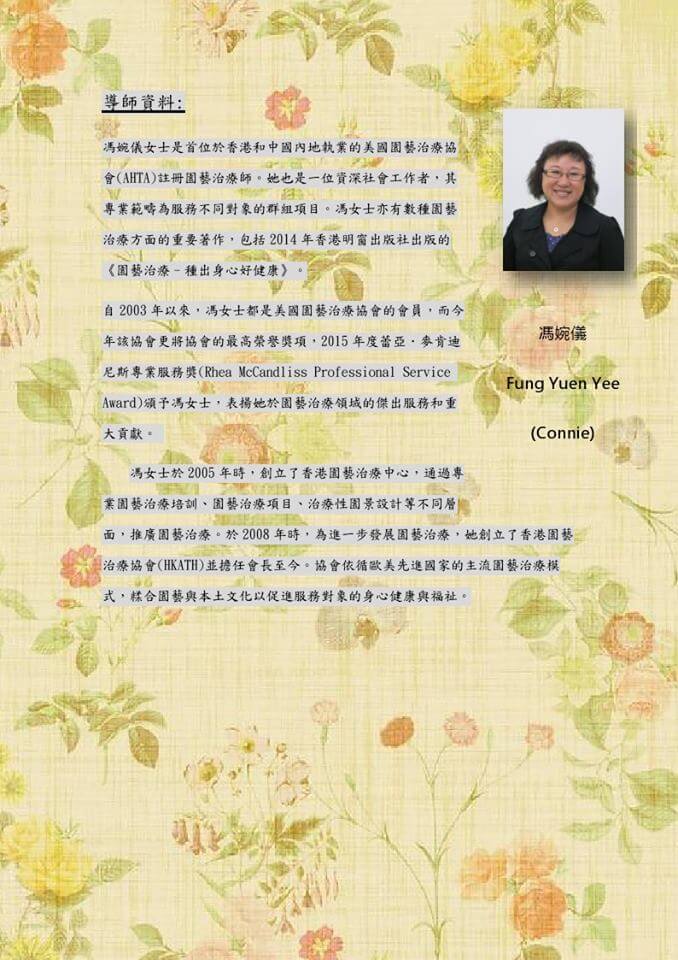 導師資料:
馮婉儀女士是首位於香港和中國內地執業的美國園藝治療協
會(AHTA)註冊園藝治療師。她也是一位資深社會工作者，其
專業範疇為服務不同對象的群組項目。馮女士亦有數種園藝
治療方面的重要著作，包括 2014 年香港明窗出版社出版的
《園藝治療–種出身心好健康》。
自 2003 年以來，馮女士都是美國園藝治療協會的會員，而今
年該協會更將協會的最高榮譽獎項，2015 年度蕾亞．麥肯迪
尼斯專業服務獎(Rhea McCandliss Professional Service
Award)頒予馮女士，表揚她於園藝治療領域的傑出服務和重
大貢獻。
馮婉儀
Fung Yuen Yee
(Connie)
馮女士於 2005 年時，創立了香港園藝治療中心，通過專
業園藝治療培訓、園藝治療項目、治療性園景設計等不同層
面，推廣園藝治療。於 2008 年時，為進一步發展園藝治療，她創立了香港園藝
治療協會(HKATH)並擔任會長至今。協會依循歐美先進國家的主流園藝治療模
式，糅合園藝與本土文化以促進服務對象的身心健康與福祉。